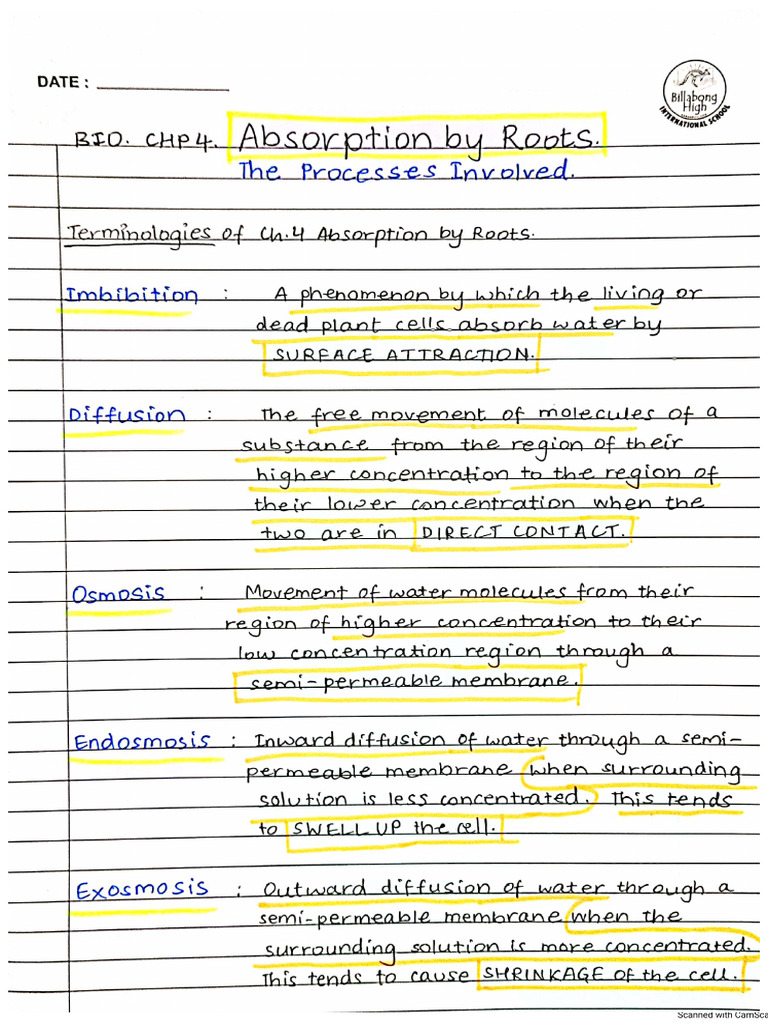 DATE : ____________
Billabong
High
INTERNATIONAL SCHOOL
BIO. CHP 4. Absorption by Roots.
The Processes Involved.
Terminologies of Ch.4 Absorption by Roots.
Imbibition : A phenomenon by which the living or
dead plant cells absorb water by
SURFACE ATTRACTION.
Diffusion : The free movement of molecules of a
substance from the region of their
higher concentration to the region of
their lower concentration when the
two are in DIRECT CONTACT.
Osmosis : Movement of water molecules from their
region of higher concentration to their
low concentration region through a
semi-permeable membrane.
Endosmosis : Inward diffusion of water through a semi-
permeable membrane when surrounding
solution is less concentrated. This tends
to SWELL UP the cell.
Exosmosis : Outward diffusion of water through a
semi-permeable membrane when the
surrounding solution is more concentrated.
This tends to cause SHRINKAGE of the cell.
Scanned with CamSca